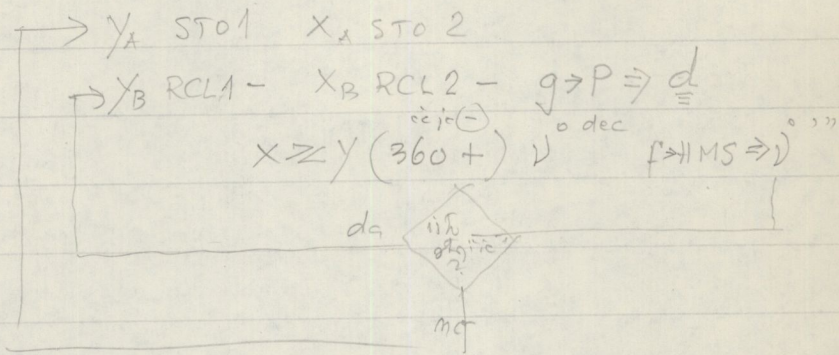 Y_A STO1 X_A STO 2
Y_B RCL1 - X_B RCL2 - g→P ⇒ d
je (-)
X ≷ Y (360 +) ν ° dec f→HMS ⇒ ν ° ' "
da
?
ne